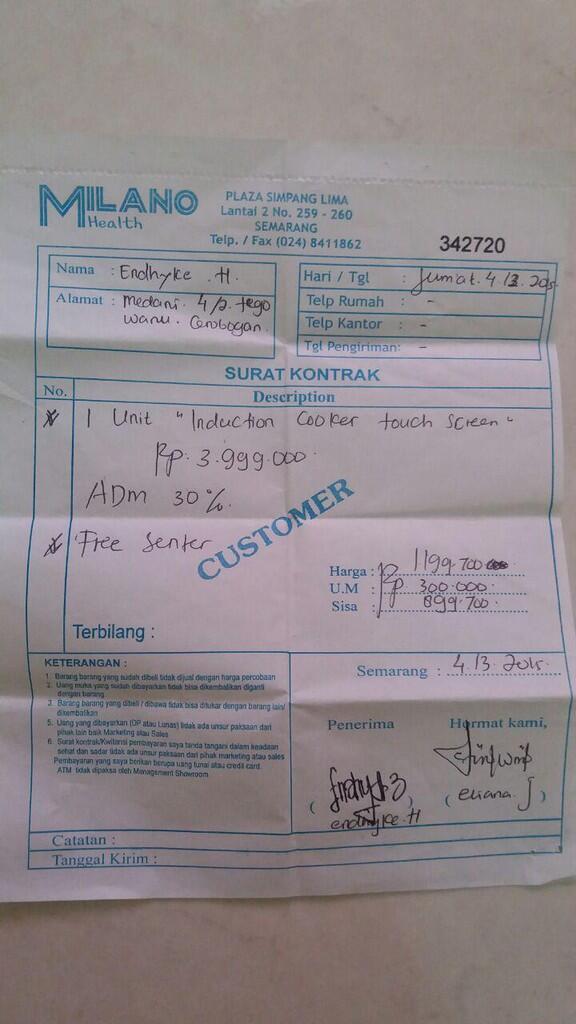 MILANO
Health
PLAZA SIMPANG LIMA
Lantai 2 No. 259 - 260
SEMARANG
Telp. / Fax (024) 8411862
342720
Nama : Endhyke .H.
Alamat : medani. 4/2. tego
wanu. Gerobogan.
Hari / Tgl : Jum'at. 4.
Telp Rumah : -
Telp Kantor : -
Tgl Pengiriman: -
SURAT KONTRAK
No. Description
1 Unit "Induction Cooker touch Screen"
Rp. 3.999.000.
ADm 30%.
Free Senter
CUSTOMER
Harga : Rp. 1199.700
U.M : 300.000.
Sisa : 899.700.
Terbilang :
KETERANGAN :
1. Barang barang yang sudah dibeli tidak dijual dengan harga percobaan
2. Uang muka yang sudah dibayarkan tidak bisa dikembalikan diganti
dengan barang
3. Barang barang yang dibeli / dibawa tidak bisa ditukar dengan barang lain/
dikembalikan
5. Uang yang dibayarkan (DP atau Lunas) tidak ada unsur paksaan dari
pihak lain baik Marketing atau Sales
6. Surat kontrak/Kwitansi pembayaran saya tanda tangani dalam keadaan
sehat dan sadar tidak ada unsur paksaan dari pihak marketing atau sales
Pembayaran yang saya berikan berupa uang tunai atau credit card.
ATM tidak dipaksa oleh Management Showroom
Semarang : 4.
Penerima Hormat kami,
( endhyke.H ) ( eliana.J )
Catatan :
Tanggal Kirim :